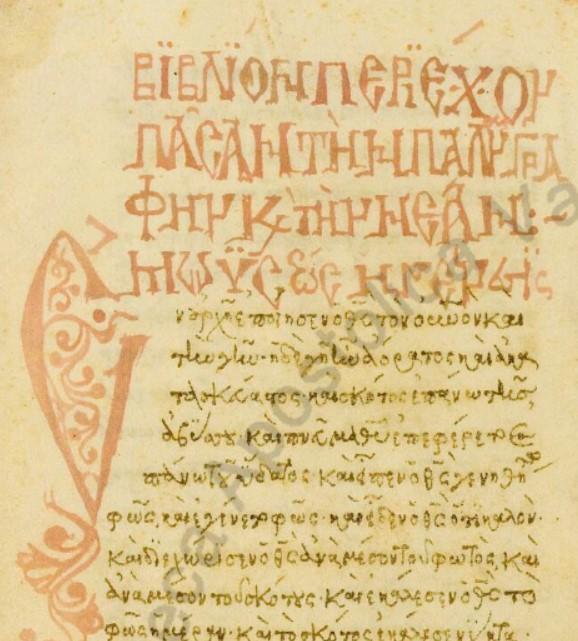 ΒΪΒΛΪΟΝ ΠΕΡΪΕΧΟΥ
ΠΑΣΑΝ ΤῊΝ ΠΑΛΑΙΑ ΓΡΑ
ΦΗΝ Κ ΤῊΝ ΝΕΑΝ:-
ΜΩΫΣΕΩΣ Η
ν ἀρχῆ ἐποίησεν ὁ θς τον οὐνον και
την γῆν· ἡ δὲ γῆ ην ἀόρατος και ἀκα
τασκεύαστος· και σκότος ἐπανω της
ἀβύσσου· και πνα θυ ἐπεφέρετο ε
πάνω του ὕδατος· και εἶπεν ὁ θς γενηθή
φῶς, και ἐγένετο φῶς· και εἶδεν ὁ θς ὅτι καλον·
και διεχώρισεν ὁ θς ἀνα μέσον του φωτος, και
ἀνα μέσον του σκότους· και ἐκάλεσεν ὁ θς το
φῶς ημέραν· και το σκότος ἐκάλεσεν νύκτα